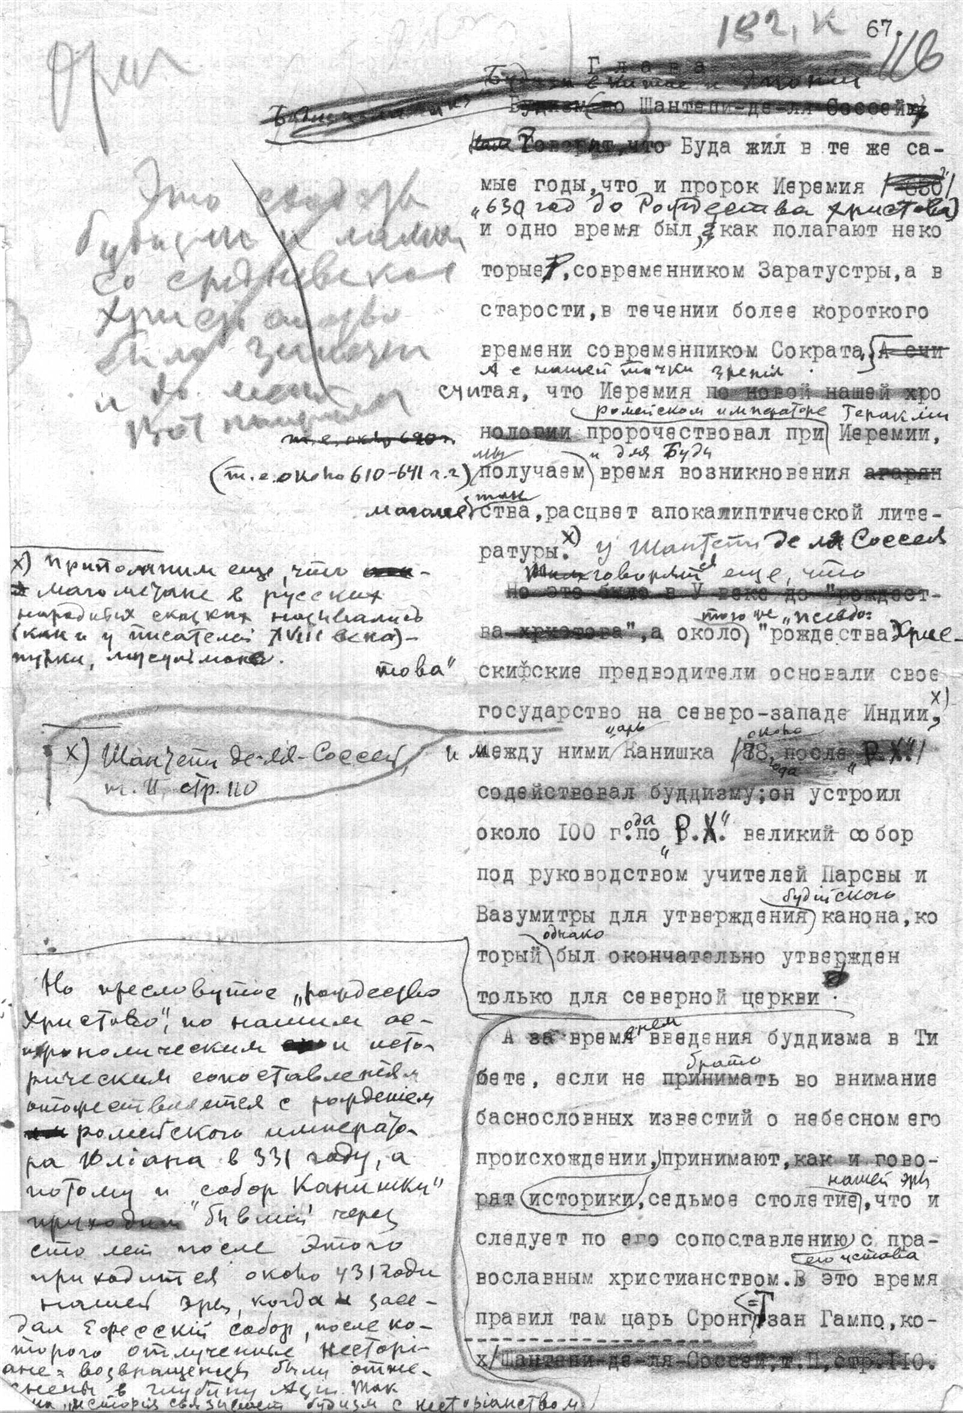 182, к 67.
116
Глава
Будизм в Китае и Японии
Будизм по Шантепи-де-ля-Соссей
Говорят, что Буда жил в те же са-
мые годы, что и пророк Иеремия
„630 год до Рождества христова)
и одно время был, как полагают неко
торые, современником Заратустры, а в
старости, в течении более короткого
времени современником Сократа, А счи
А с нашей точки зрения
считая, что Иеремия по новой нашей хро
ромейском императоре Геракли
нологии пророчествовал при Иеремии,
мы и для Буды
(т.е. около 610-641 г.г) получаем время возникновения агарян
магоме тан
ства, расцвет апокалиптической лите-
ратуры. х) У Шантепи де ля Соссея
говорят еще, что
Но это было в У веке до "рождест-
того же „псевдо-
ва христова", а около "рождества Хрис-
това"
скифские предводители основали свое
государство на северо-западе Индии, х)
царь около
и между ними Канишка /78 года после „Р.Х."/
содействовал буддизму; он устроил
около 100 года по „Р.Х." великий собор
под руководством учителей Парсвы и
будийского
Вазумитры для утверждения канона, ко
однако
торый был окончательно утвержден
только для северной церкви.
А временем введения буддизма в Ти
брать
бете, если не принимать во внимание
баснословных известий о небесном его
происхождении, принимают, как и гово-
нашей эры
рят историки, седьмое столетие, что и
следует по его сопоставлению с пра-
вославным христианством. В это время
правил там царь Сронг-Тзан Гампо, ко-
х/Шантепи-де-ля-Соссей, т. II, стр. 110.
Это сходство
будизма и ламаизма
со средневековым
христианством
было замечено
и до меня
Вот например
х) Припомним еще, что
магометане в русских
народных сказках назывались
(как и у писателей XVIII века)-
турки, мусулмане.
х) Шантепи де-ля-Соссей,
т. II, стр. 110
Но пресловутое „рождество
Христово", по нашим ас-
трономическим и исто-
рическим сопоставлениям
отожествляется с рождением
ромейского императо-
ра Юлиана в 331 году, а
потому и „собор Канишки"
приходит бывший через
сто лет после этого
приходится около 431 года
нашей эры, когда засе-
дал Ефесский собор, после ко-
торого отлученные несториане
возвращенцы были оттеснены
в глубину Азии. Так
история связывает будизм с несторианством